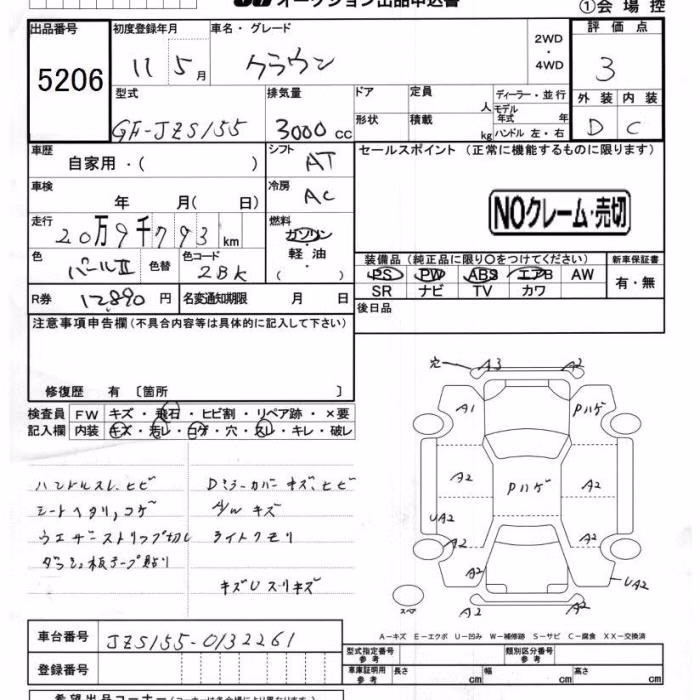 オークション出品申込書
①会場控
出品番号 初度登録年月 車名・グレード 評価点
5206 11 5月 クラウン 2WD・4WD 3
型式 排気量 ドア 定員 人 ディーラー・並行 外装 内装
GF-JZS155 3000cc 形状 積載 kg モデル年式 年 ハンドル 左・右 D C
車歴 シフト セールスポイント (正常に機能するものに限ります)
自家用・( ) AT
車検 冷房
年 月( 日) AC
NOクレーム・売切
走行 燃料
20万9千793km ガソリン・軽油・( )
色 色替 色コード 装備品(純正品に限り○をつけてください) 新車保証書
パールⅡ 2BK PS PW ABS エアB AW 有・無
SR ナビ TV カワ
R券 12890円 名変通知期限 月 日
後日品
注意事項申告欄(不具合内容等は具体的に記入して下さい)
修復歴 有 〔箇所 〕
検査員 FW キズ・飛石・ヒビ割・リペア跡・×要
記入欄 内装 キズ・汚レ・コゲ・穴・スレ・キレ・破レ
ハンドルスレ、ヒビ Dミラーカバーキズ、ヒビ
シートヘタリ、コゲ A/Wキズ
ウエザーストリップ切レ ライトクモリ
ダッシュ板テープ貼り
キズUスリキズ
穴 A3 A2
A1 Pハゲ
A2 Pハゲ A2
UA2 A2
A2 UA2
スペア A2
A－キズ E－エクボ U－凹み W－補修跡 S－サビ C－腐食 XX－交換済
車台番号 JZS155-0132261
型式指定番号 参考 類別区分番号 参考
登録番号 車庫証明用 参考 長さ cm 幅 cm 高さ cm
希望出品コーナー